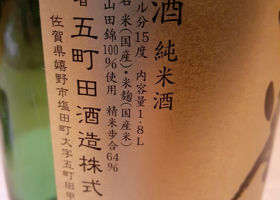 酒 純米酒
ル分15度 内容量1.8L
名 米(国産)・米麹(国産米)
山田錦100%使用 精米歩合64%
者 五町田酒造株式
佐賀県嬉野市塩田町大字五町田甲